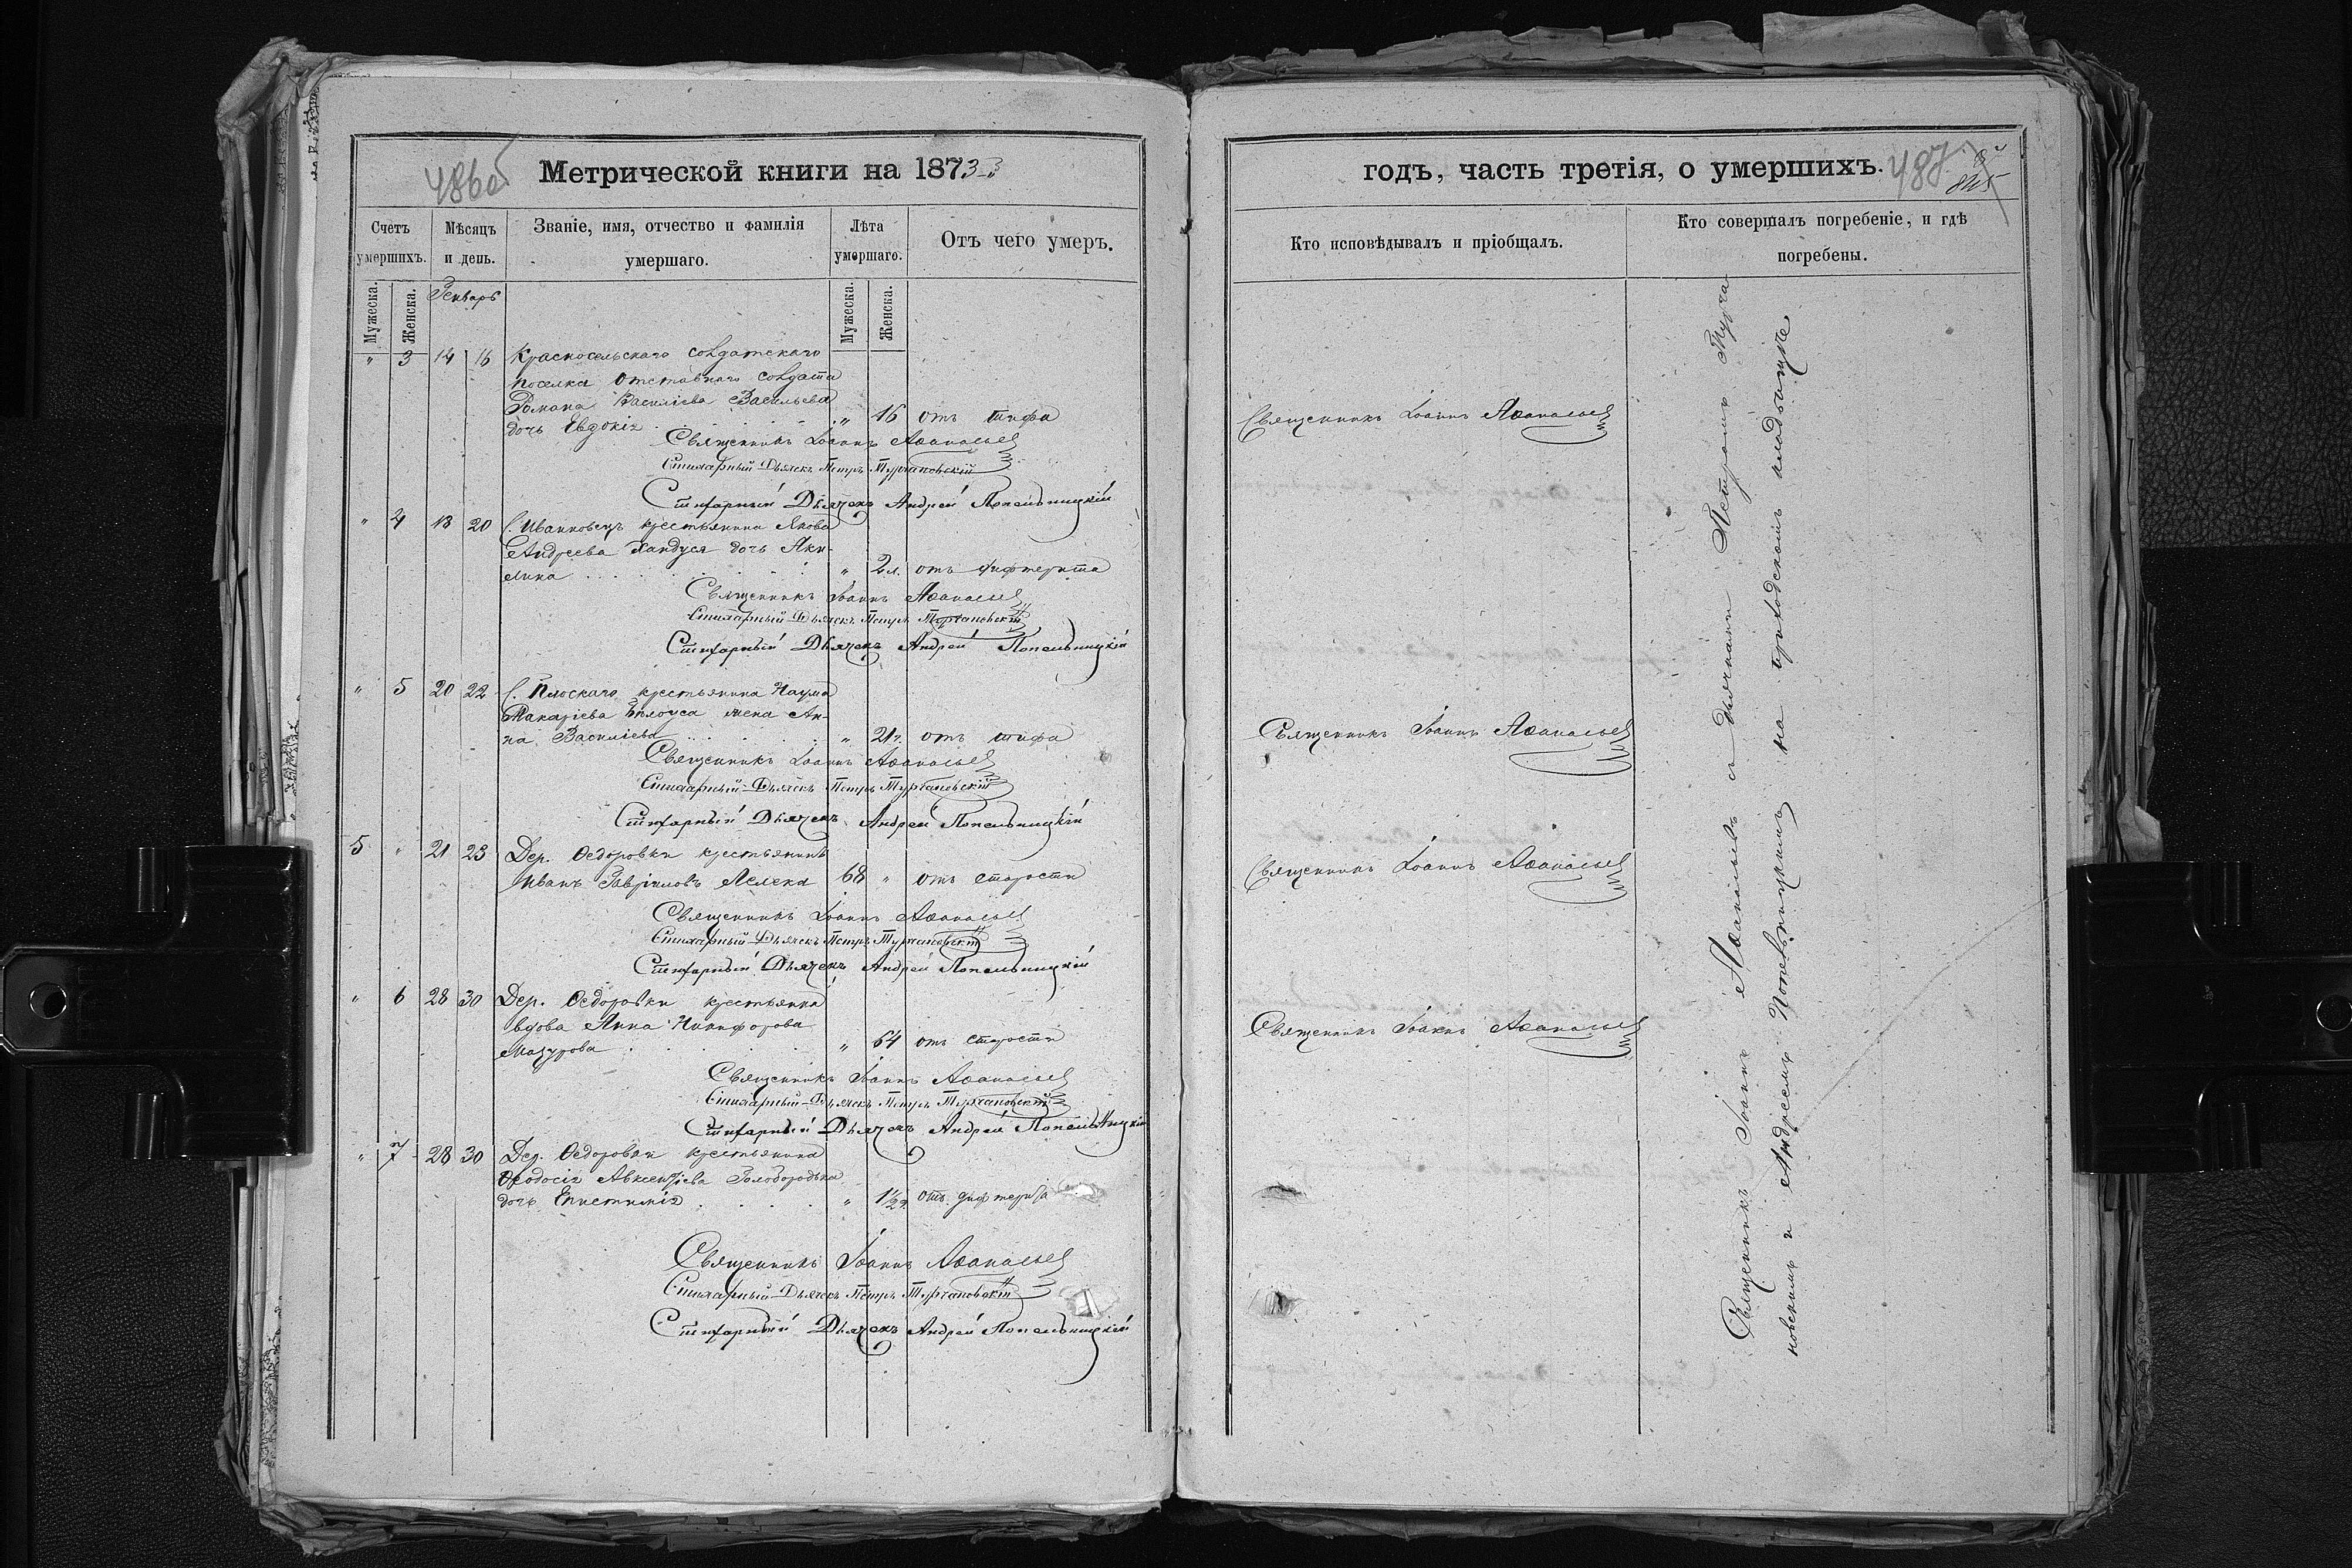 486об
Метрической книги на 1873
Счетъ умершихъ.
Мѣсяцъ и день.
Званіе, имя, отчество и фамилія умершаго.
Лѣта умершаго.
Отъ чего умеръ.
Мужеска. Женска. Генварь Мужеска. Женска.
" 3 14 16 Красносельскаго солдатскаго
поселка отставнаго солдата
Романа Василіева Васильева
дочь Евдокія " 16 отъ тифа
Священникъ Іоаннъ Аѳанасьев
Стихарный Дьячекъ Петръ Турчановскій
Стихарный Дьячекъ Андрей Попельницкій
" 4 18 20 С. Иванковецъ крестьянина Якова
Андреева Хандуся дочь Аки-
лина " 2 л. отъ дифтерита
Священникъ Іоаннъ Аѳанасьев
Стихарный Дьячекъ Петръ Турчановскій
Стихарный Дьячекъ Андрей Попельницкій
" 5 20 22 С. Плоскаго крестьянина Наума
Макаріева Билоуса жена Ан-
на Василіева " 21 г. отъ тифа
Священникъ Іоаннъ Аѳанасьев
Стихарный Дьячекъ Петръ Турчановскій
Стихарный Дьячекъ Андрей Попельницкій
5 " 21 23 Дер. Ѳедоровки крестьянинъ
Иванъ Гавріиловъ Лелека 68 " отъ старости
Священникъ Іоаннъ Аѳанасьев
Стихарный Дьячекъ Петръ Турчановскій
Стихарный Дьячекъ Андрей Попельницкій
" 6 28 30 Дер. Ѳедоровки крестьянка
вдова Анна Никифорова
Мазурова " 64 отъ старости
Священникъ Іоаннъ Аѳанасьев
Стихарный Дьячекъ Петръ Турчановскій
Стихарный Дьячекъ Андрей Попельницкій
" 7 28 30 Дер. Ѳедоровки крестьянина
Ѳеодосія Авксентіева Голобородька
дочь Епистимія " 1½ г. отъ дифтерита
Священникъ Іоаннъ Аѳанасьев
Стихарный Дьячекъ Петръ Турчановскій
Стихарный Дьячекъ Андрей Попельницкій
годъ, часть третія, о умершихъ.
487
Кто исповѣдывалъ и пріобщалъ.
Кто совершалъ погребеніе, и гдѣ
погребены.
Священникъ Іоаннъ Аѳанасьев
Священникъ Іоаннъ Аѳанасьев
Священникъ Іоаннъ Аѳанасьев
Священникъ Іоаннъ Аѳанасьев
Священникъ Іоаннъ Аѳанасьевъ съ дьячками Петромъ Турча
новскимъ и Андреемъ Попельницкимъ на приходскомъ кладбищѣ